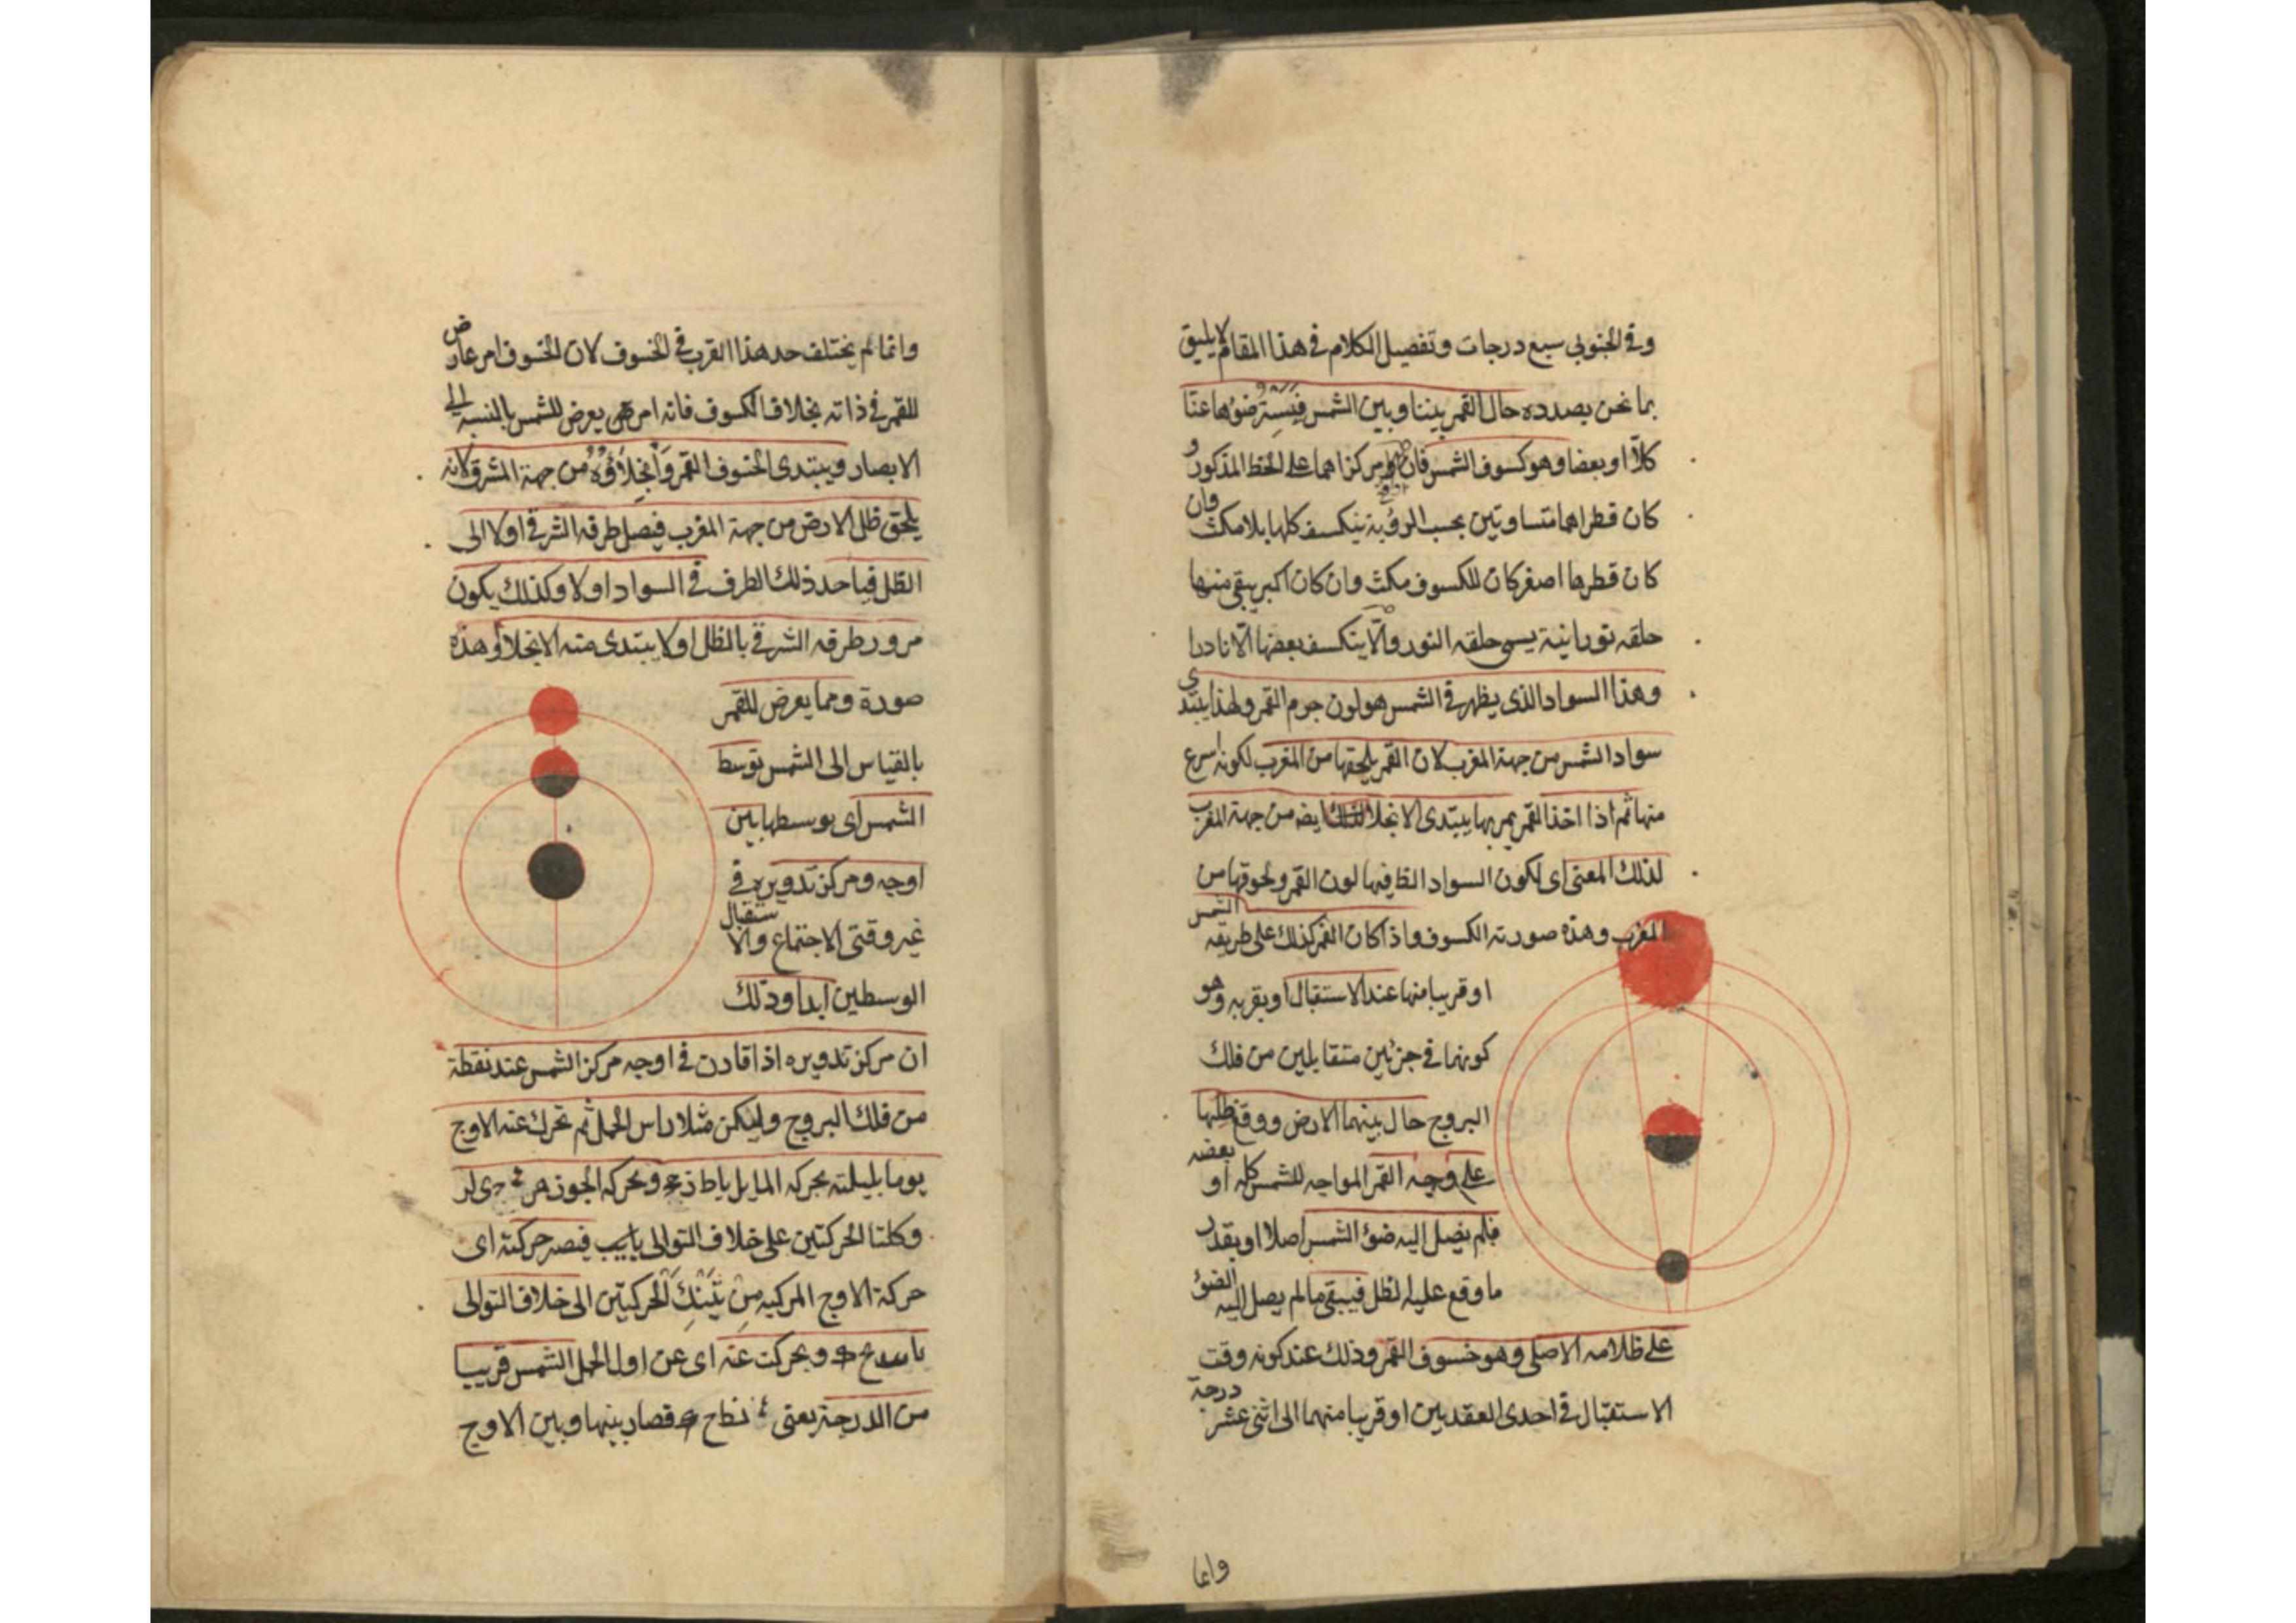 وفي الجنوبي سبع درجات وتفصيل الكلام في هذا المقام لا يليق
بما نحن بصدده حال القمر بيننا وبين الشمس فيستر ضوءها عنا
كلا او بعضا وهو كسوف الشمس فان مركزاهما على الخط المذكور و
كان قطراهما متساويتين بحسب الرؤية ينكسف كلها بلا مكث وان
كان قطرها اصغر كان للكسوف مكث وان كان اكبر يبقى منها
حلقه نورانية يسمى حلقه النور والا ينكسف بعضها الا نادرا
وهذا السواد الذى يظهر في الشمس هو لون جرم القمر ولهذا يبتدي
سواد الشمس من جهة المغرب لان القمر يلحقها من المغرب لكونه اسرع
منها ثم اذا اخذ القمر يمر بها يبتدى الانجلا ايضه من جهة المغرب
لذلك المعنى اى لكون السواد الظ فيها لون القمر ولحوقها من
المغرب وهذه صورته الكسوف واذا كان القمر كذلك على طريقه الشمس
او قريبا منها عند الاستقبال او بقربه وهو
كونهما في جزئين متقابلين من فلك
البروج حال بينهما الارض ووقع ظلها
على وجه القمر المواجه للشمس كله او بعضه
فلم يصل اليه ضوء الشمس اصلا او بقدر
ما وقع عليه الظل فيبقى ما لم يصل اليه الضوء
على ظلامه الاصلى وهو خسوف القمر وذلك عند كونه وقت
الاستقبال في احدى العقدتين او قريبا منهما الى اثنى عشر درجة
وانما
وانما لم يختلف حد هذا القرب في الخسوف لان الخسوف امر عارض
للقمر في ذاته بخلاف الكسوف فانه امر يعرض للشمس بالنسبه الى
الابصار ويبتدى الخسوف القمر وانجلاؤه من جهة المشرق لانه
يلحق ظل الارض من جهة المغرب فيصل طرفه الشرقي اولا الى
الظل فياخد ذلك الطرف في السواد اولا وكذلك يكون
مرور طرفه الشرقي بالظل اولا يبتدى منه الانجلاؤ هذه
صورة ومما يعرض للقمر
بالقياس الى الشمس توسط
الشمس اى توسطها بين
اوجه ومركز تدويره في
غير وقتى الاجتماع والاستقبال
الوسطين ابدا وذلك
ان مركز تدويره اذا قارن في اوجه مركز الشمس عند نقطة
من فلك البروج وليكن مثلا راس الحمل ثم تحرك عنه الاوج
يوما بليلته بحركه المايل يا ط وبحركه الجوزهر
وكلتا الحركتين على خلاف التوالى حركته اى
حركة الاوج المركبه من تينك الحركتين الى خلاف التوالى
وبحركت عنه اى عن اول الحمل الشمس قريبا
من الدرجة يعنى نط ح فصار بينها وبين الاوج